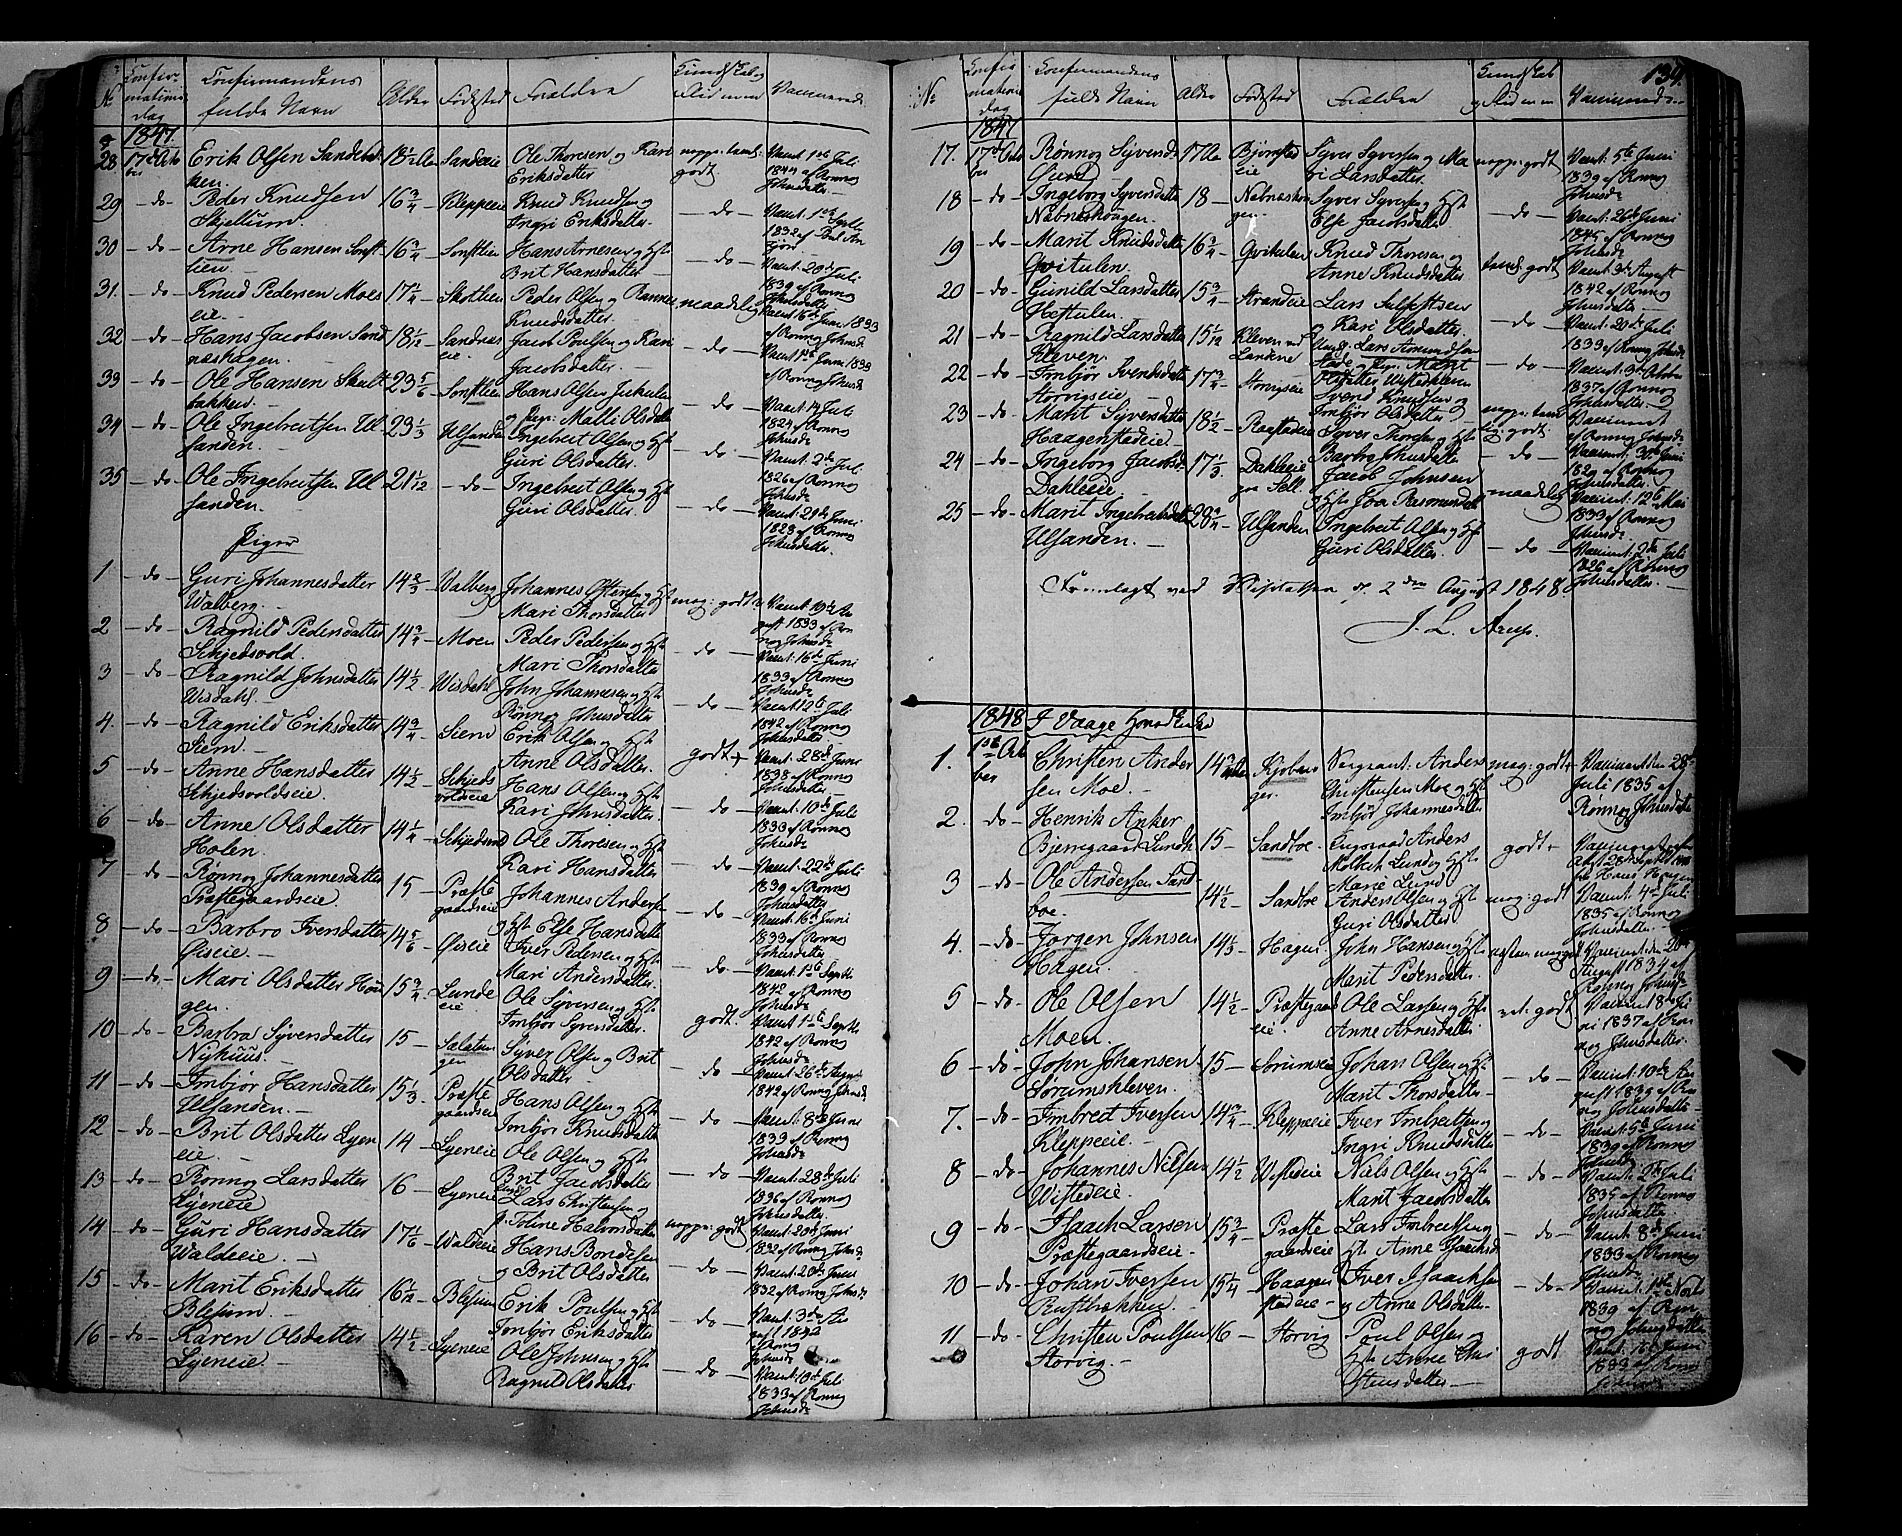 No
Confirmations dag
Confirmandens fulde Navn
Alder
Fødested
Forældre
Kundskab og Flid m.m.
Vaccinered
1847
28 17de Octo ber Erik Olsen Sandebak ken. 18 1/2 Sandeeie Ole Thoresen og Kari Eriksdatter nogn: taml: godt Vaccint. 1ste Juli 1844 af Rønnog Johnsdatter
29 - do - Peder Knudsen Skjellum. 16 3/4 Kleppeeie Knud Knudsen og Ingri Eriksdatter. - do - Vaccint. 1832
30 - do - Arne Hansen Sonst lien. 16 3/4 Sonstlien Hans Arnesen og Hst Brit Hansdatter - do - Vaccint. 20de Juli 1839 af Rønnog Johnsdatter
31. - do - Knud Pedersen Moes eie. 17 1/4 Skotlien Peder Olsen og Rannei Knudsdatter. maadelig Vaccint. 16de Juni 1833 af Rønnog Johnsd.
32 - do - Hans Jacobsen Sand næshagen. 18 1/12 Sandnes eie. Jacob Poulsen og Kari Jacobsdatter. - do - Vaccint. 1ste Juni 1833 af Rønnog Johnsd.
33 - do - Ole Hansen Skult bakken. 23 5/6 Sonstlien Hans Olsen og Pige Malli Olsdatter - do - Vaccint. 14 Juli 1824 af Rønnog Johnsd.
34 - do - Ole Ingebreitsen Ul sanden. 23 1/3 Ulsanden Ingebreit Olsen og Hst Guri Olsdatter. - do - Vaccint. 2de Juli 1826 af Rønnog Johnsd.
35 - do - Ole Ingebreitsen Ul sanden. 21 1/12 - do - Ingebreit Olsen og Hst Guri Olsdatter. - do - Vaccint. 29de Juni 1828 af Rønnog Johnsdatter.
Piger
1 - do - Guri Johannesdatter Walberg. 14 2/3 Walberg Johannes Ostensen og Hst Mari Thorsdatter. meg: godt Vaccint. 19de Au gust 1833 af Røn nog Johnsd.
2 - do - Ragnild Pedersdatter Skjedsvold. 14 3/4 Moen Peder Pedersen og Hst Mari Thorsdatter - do - Vaccint. 16de Juni 1833 af Rønnog Johnsd.
3 - do - Ragnild Johnsdatter Wisdahl. 14 1/2 Wisdahl John Johannesen og Hst Rønnog Johnsdatter - do - Vaccint. 12te Juli 1842 af Rønnog Johnsdatter
4. - do - Ragnild Eriksdatter Siem. 14 3/4 Siem Erik Olsen og Hst Anne Olsdatter. godt + Vaccint. 28de Juni 1838 af Rønnog Johnsd.
5 - do - Anne Hansdatter Skjedsvoldseie. 14 1/2 Skjeds voldseie Hans Olsen og Hst Kari Johnsdatter. - do - Vaccint. 10de Juli 1833 af Rønnog Johnsd.
6 - do - Anne Olsdatter Holen. 14 1/4 Skjedsvold Ole Thoresen og Hst Kari Hansdatter - do - Vaccint. 22de Juli 1839 af Rønnog Johnsdatter
7 - do - Rønnog Johannesdatter Præstegaardseie. 15 Præste gaardseie Johannes Andersen og Hst Else Hansdatter - do - Vaccint. 16de Juni 1833 af Rønnog Johnsdatter
8 - do - Barbro Iversdatter Øiseie. 14 5/6 Øiseie Iver Pedersen og Hst Mari Andersdatter. - do - Vaccint. 1ste Septbr 1842 af Rønnog Johnsd.
9 - do - Mari Olsdatter Hau gen. 15 3/4 Lunde eie. Ole Syversen og Hst Imbjør Syversdatter. godt. Vaccint. 1ste Septbr 1842 af Rønnog Johnsd.
10 - do - Barbra Syversdatter Nyhuus. 15 Syver Olsen og Brit Olsdatter - do - Vaccint. 26de August 1842 af Rønnog Johnsd.
11 - do - Imbjør Hansdatter Ulsanden. 15 1/3 Præste gaardseie Hans Olsen og Hst Imbjør Knudsdatter - do - Vaccint. 8de Juni 1839 af Rønnog Johnsd.
12 - do - Brit Olsdatter Lyen eie. 14 Lyeneie Ole Olsen og Hst Brit Jacobsdatter - do - Vaccint. 28de Juli 1836 af Rønnog Johnsdatter
13 - do - Rønnog Larsdatter Lyeneie 16 Lyeneie Lars Christensen og P. Johne Halvorsdatter nogn: godt Vaccint. 20de Juni 1832 af Rønnog Johnsd.
14 - do - Guri Hansdatter Waldeeie. 17 1/6 Waldeeie Hans Bondesen og Brit Olsdatter - do - Vaccint. 20de Juni 1832 af Rønnog Johnsd.
15 - do - Marit Eriksdatter Blessum. 16 1/2 Blessum Erik Poulsen og Hst Imbjør Eriksdatter - do - Vaccint. 3de Au gust 1842 af Rønnog Johnsd.
16 - do - Karen Olsdatter Lyeneie. 14 1/2 Lyeneie Ole Johnsen og Hst Ragnild Olsdatter - do - Vaccint. 10de Juli 1833 af Rønnog Johnsd.
134.
No
Confirmations dag
Confirmandens fulde Navn
Alder
Fødested
Forældre
Kundskab og Flid m.m.
Vaccinered
1847
17. 17de Octo ber Rønnog Syversd. 17 Bjørnstad eie Syver Syversen og Ma ri Larsdatter. nogn: godt Vaccint. 5te Juni 1839 af Rønnog Johnsdatter.
18 - do - Ingeborg Syversdatter Nabneshougen. 18 Nabneshou gen. Syver Syversen og Hst Else Jacobsdatter - do - Vaccint. 26de Juni 1845 af Rønnog Johnsd.
19 - do - Marit Knudsdatter Qvitulen. 16 3/4 Qvitulen Knud Thoresen og Anne Knudsdatter taml. godt Vaccint. 3de August 1842 af Rønnog Johnsdatter
20 - do - Gunild Larsdatter Hestulen. 15 3/4 Strandeie Lars og Kari Olsdatter. - do - Vaccint. 20de Juli 1833 af Rønnog Johnsd.
21 - do - Ragnild Larsdatter Kleven. 15 1/12 Kleven ved Ung. Lars Amundsen og Pige Marit - do - Vaccint. 3de October 1837 af Rønnog Johnsdatter.
22 - do - Imbjør Svendsdatter Storvigseie. 17 3/4 Storvigseie Svend Knudsen og Imbjør Olsdatter
23 - do - Marit Syversdatter Haagenstadeie. 18 1/2 Syver Thoresen og Hst Barbro Johnsdatter - do - 1829 af Rønnog Johnsdatter.
24 - do - Ingeborg Jacobsd. Dahleeie. 17 1/3 Dahleeie Jacob Johnsen og Hst Eva Rasmusdatt. maadelig Vaccint. 12te Mai 1833 af Rønnog Johnsd.
25 - do - Marit Ingebreitsdatt. Ulsanden. 20 3/4 Ulsanden Ingebreit Olsen og Hst Guri Olsdatter. - do - Vaccint. 2den Juli 1826 af Rønnog Johnsdatter.
Fremlagt ved Visitatsen d. 2den August 1848.
J. L. Arup.
1848 I Vaage Hovedkirke
1. 1ste Octo ber Christen Ander sen Moe. 14 Kjøben Sergeant. Anders Christensen Moe og Hst Imbjør Johannesdatter meg: godt + Vaccineret den 28de Juli 1835 af Rønnog Johnsdatter
2. - do - Henrik Anker Bjerregaard Lundh 15 Sandboe Anders Lund og Hst Marie Lund godt + Vaccineret
3 - do - Ole Andersen Sand boe. 14 1/2 Sandboe Anders Olsen og Hst Guri Olsdatter meg: godt Vaccint. 4de Juli 1835 af Rønnog Johnsdatter.
4. - do - Jørgen Johnsen Hagen. 14 1/3 Hagen John Hansen og Hst Marit Pedersdatter. næsten meg: godt Vaccineret den 20de August 1834 af Rønnog Johnsd.
5 - do - Ole Olsen Moen. 14 1/2 Præstegaard eie. Ole Larsen og Hst Anne Arnesdatter. ret: godt Vaccint. 18de Ju ni 1837 af Røn nog Johnsdatter.
6 - do - John Johansen Sørumskleven. 15 Sørumseie Johan Olsen og Hst Marit Thorsdatter - do - Vaccint. 10de Au gust 1839 af Røn nog Johnsdatter
7. - do - Imbret Iversen Kleppeeie. 14 3/4 Kleppeeie Iver Imbretsen og Ingri Knudsdatter - do - Vaccint. 5te Juni 1839 af Rønnog Johnsd.
8 - do - Johannes Nilssen Wistedeie. 14 1/2 Wistedeie Niels Olsen og Hst Marit Jacobsdatter - do - Vaccint. 2de Juli 1835 af Rønnog Johnsdatter.
9 - do - Isaach Larsen Præstegaardseie. 15 3/4 Præste gaardseie Lars Imbretsen og Hst Anne Isachsd. - do - Vaccint. 8de Juni 1833 af Rønnog Johnsd.
10 - do - Johan Iversen Rustbakken. 15 1/4 Haagen stadeie Iver Isaachsen og Anne Olsdatter - do - Vaccint. 1ste Novbr 1839 af Røn nog Johnsdatter
11 - do - Christen Poulsen Storvig. 16 Storvig Poul Olsen og Hst Anne Chri stensdatter godt Vaccint. Juni 1833 af Rønnog Johnsd.